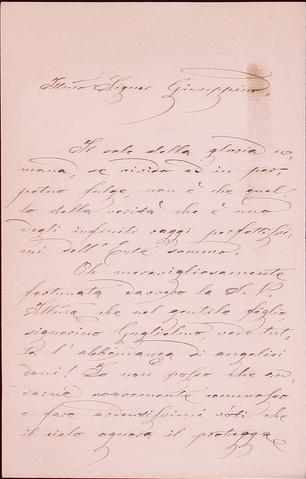 Illmo Signor Giuseppino,
Il sole della gloria u-
mana, se vivido ed in per-
petuo fulge, non è che quel-
lo della verità che è uno
degli infiniti raggi perfettissi-
mi dell'Ente sommo.
Oh meravigliosamente
fortunata davvero la S. V.
Illma che nel gentile figlio
signorino Guglielmo, vede tut-
ta l'abbondanza di angelici
doni! Io non posso che an-
darne commosso
e fare ardentissimi voti che
il cielo ognora il protegga